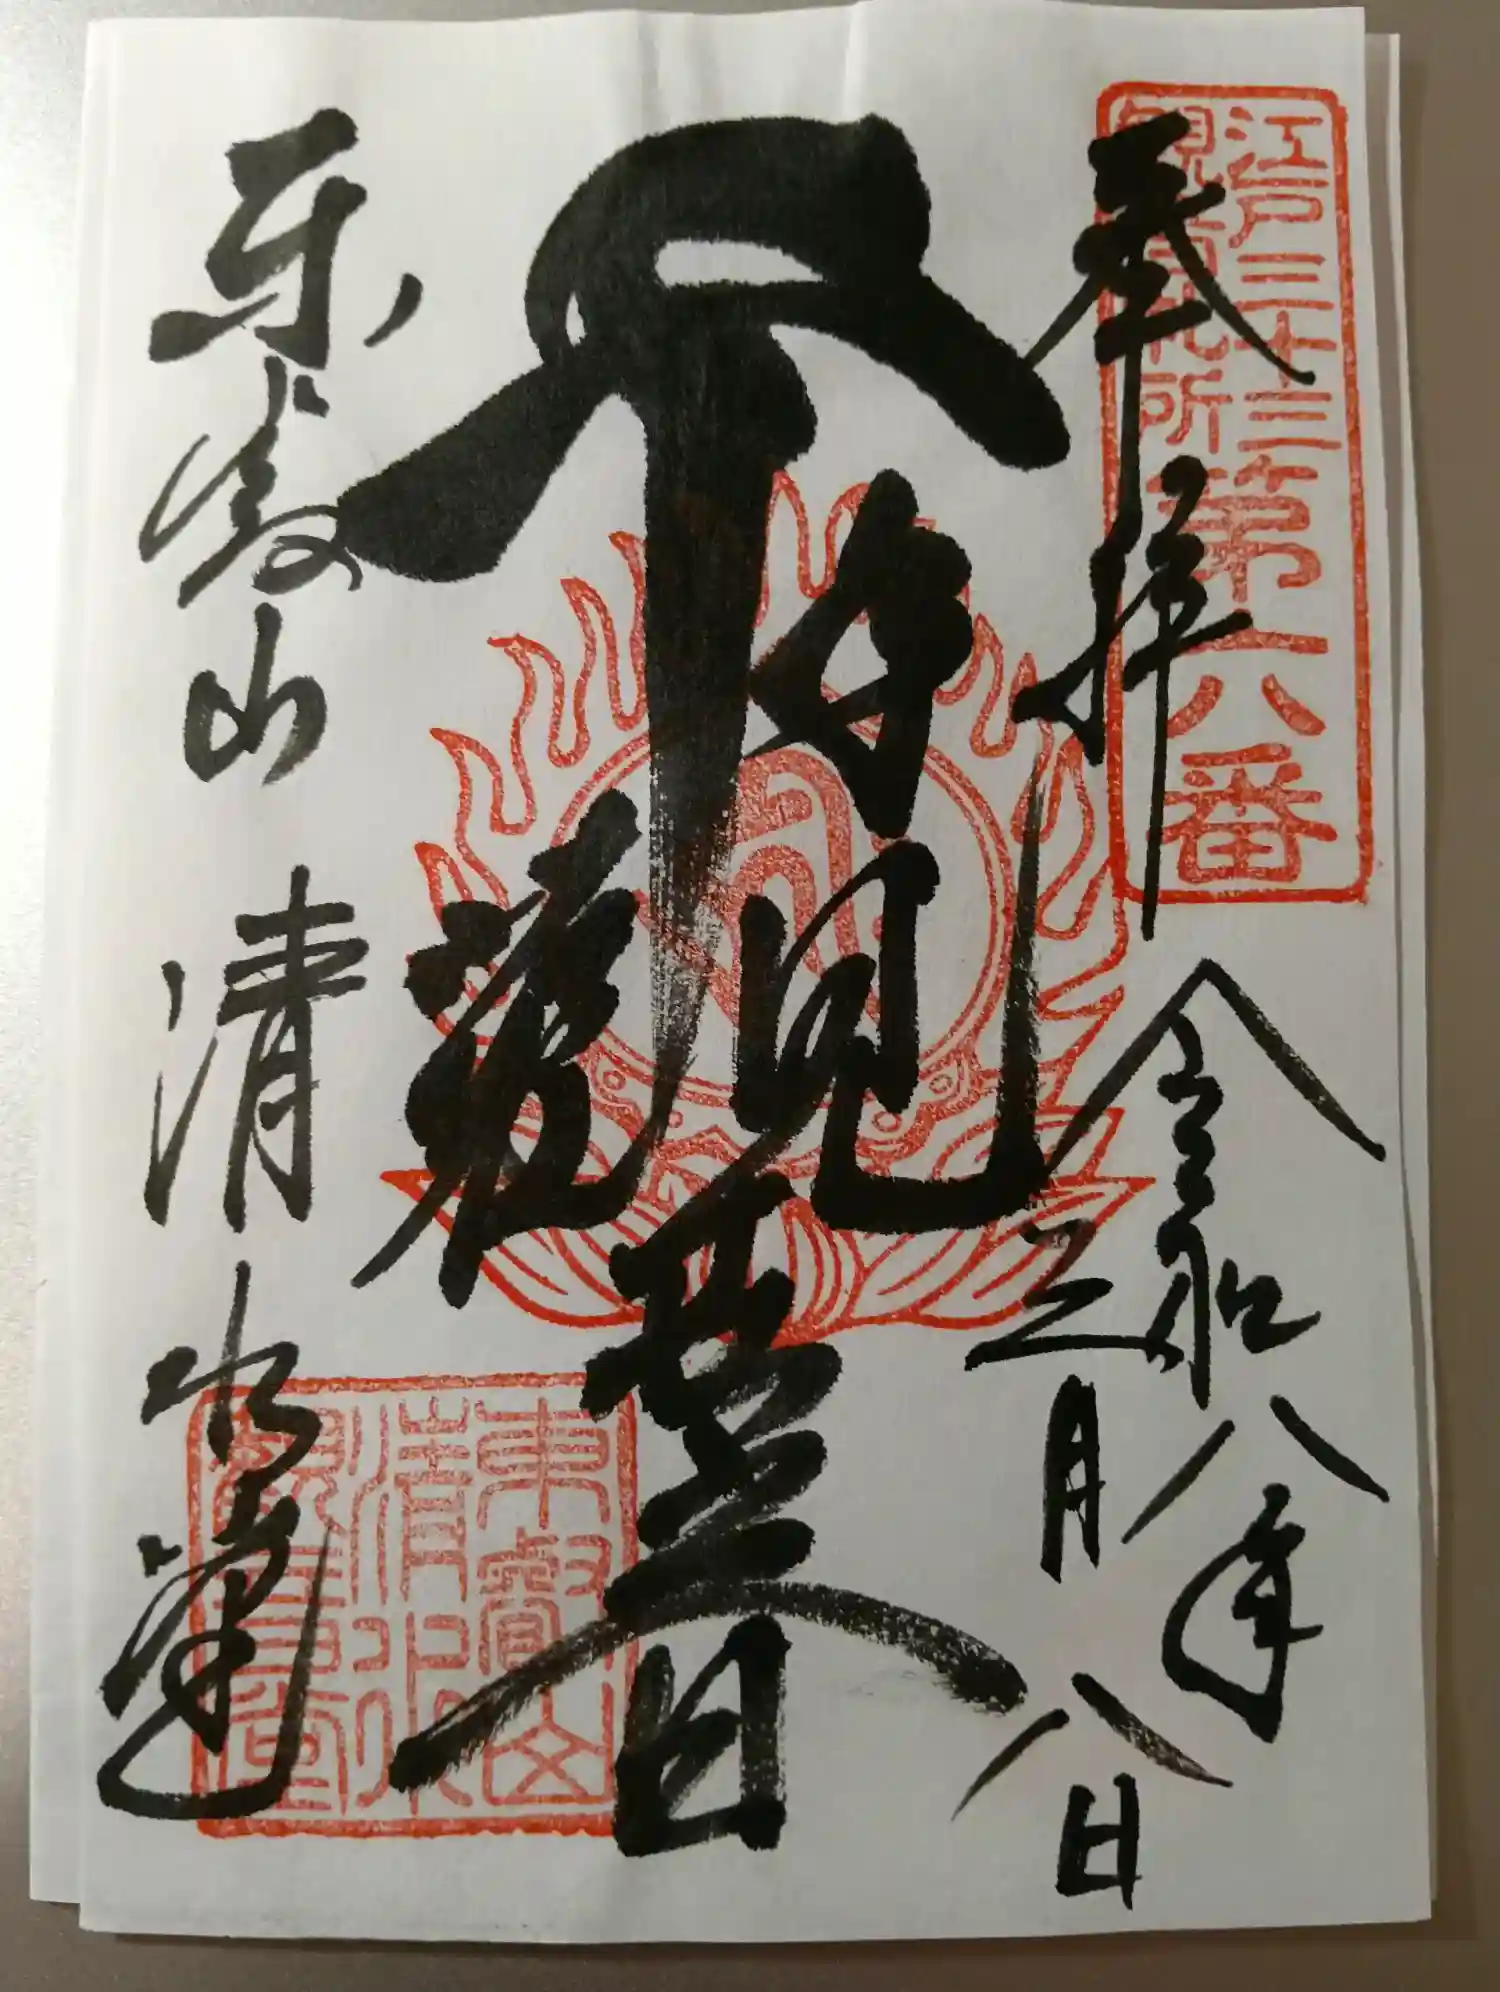 江戸三十三
観音札所
第六番
奉拝
令和八年
二月八日
千手觀世音
東叡山 清水堂
東叡山
清水
觀音堂